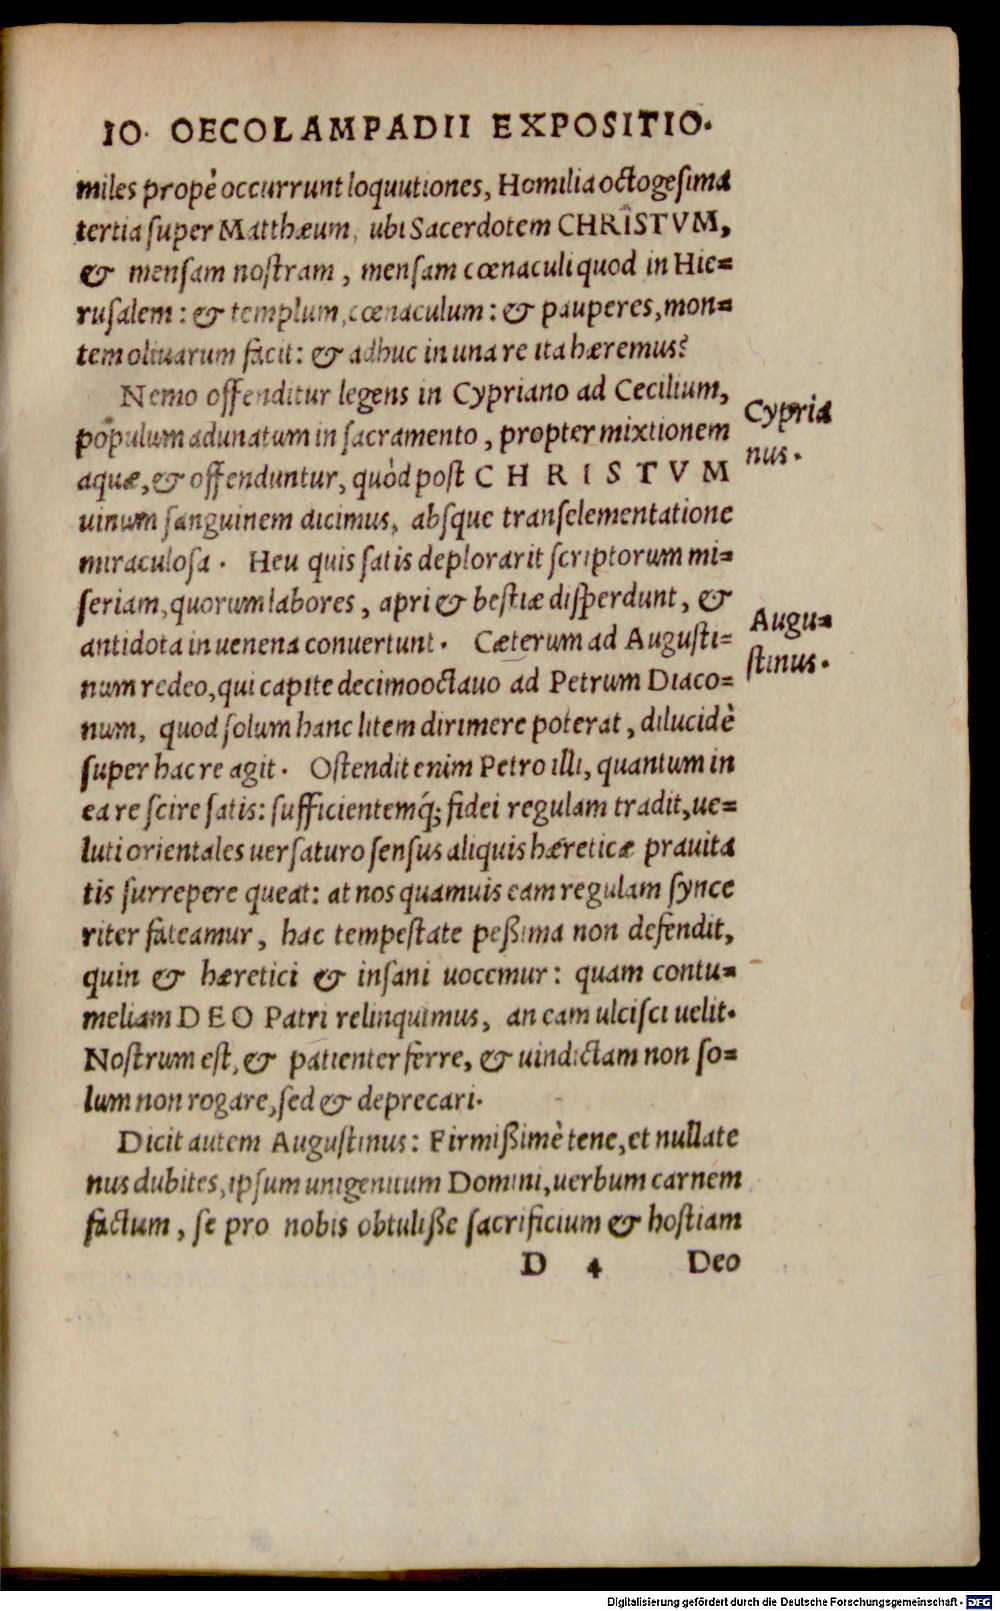 IO. OECOLAMPADII EXPOSITIO.
miles propè occurrunt loquutiones, Homilia octogesima
tertia super Matthæum, ubi Sacerdotem CHRISTVM,
& mensam nostram, mensam cœnaculi quod in Hie=
rusalem: & templum, cœnaculum: & pauperes, mon=
tem oliuarum facit: & adhuc in una re ita hæremus?
Nemo offenditur legens in Cypriano ad Cecilium,
populum adunatum in sacramento, propter mixtionem
aquæ, & offenduntur, quòd post CHRISTVM
uinum sanguinem dicimus, absque transelementatione
miraculosa. Heu quis satis deplorarit scriptorum mi=
seriam, quorum labores, apri & bestiæ disperdunt, &
antidota in uenena conuertunt. Cæterum ad Augusti=
num redeo, qui capite decimooctauo ad Petrum Diaco=
num, quod solum hanc litem dirimere poterat, dilucidè
super hac re agit. Ostendit enim Petro illi, quantum in
ea re scire satis: sufficientemq́; fidei regulam tradit, ue=
luti orientales uersaturo sensus aliquis hæreticæ prauita
tis surrepere queat: at nos quamuis eam regulam synce
riter fateamur, hac tempestate peßima non defendit,
quin & hæretici & insani uocemur: quam contu=
meliam DEO Patri relinquimus, an eam ulcisci uelit.
Nostrum est, & patienter ferre, & uindictam non so=
lum non rogare, sed & deprecari.
Dicit autem Augustinus: Firmißimè tene, et nullate
nus dubites, ipsum unigenitum Domini, uerbum carnem
factum, se pro nobis obtulisse sacrificium & hostiam
D 4 Deo
Cypria
nus.
Augu=
stinus.
Digitalisierung gefördert durch die Deutsche Forschungsgemeinschaft - DFG